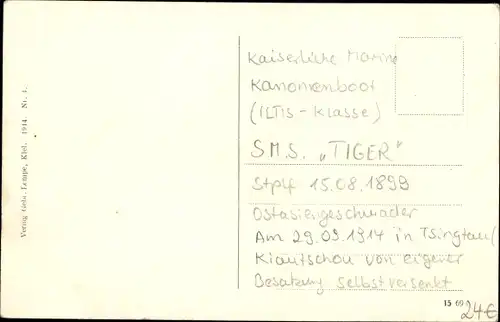 Kaiserliche Marine
Kanonenboot
(ILTIS - Klasse)
S.M.S. „TIGER"
Stplf 15.08.1899
Ostasiengeschwader
Am 29.09.1914 in Tsingtau/
Kiautschou von eigener
Besatzung selbstversenkt
15 69
24€
Verlag Gebr. Lempe, Kiel. 1914. Nr. 1.